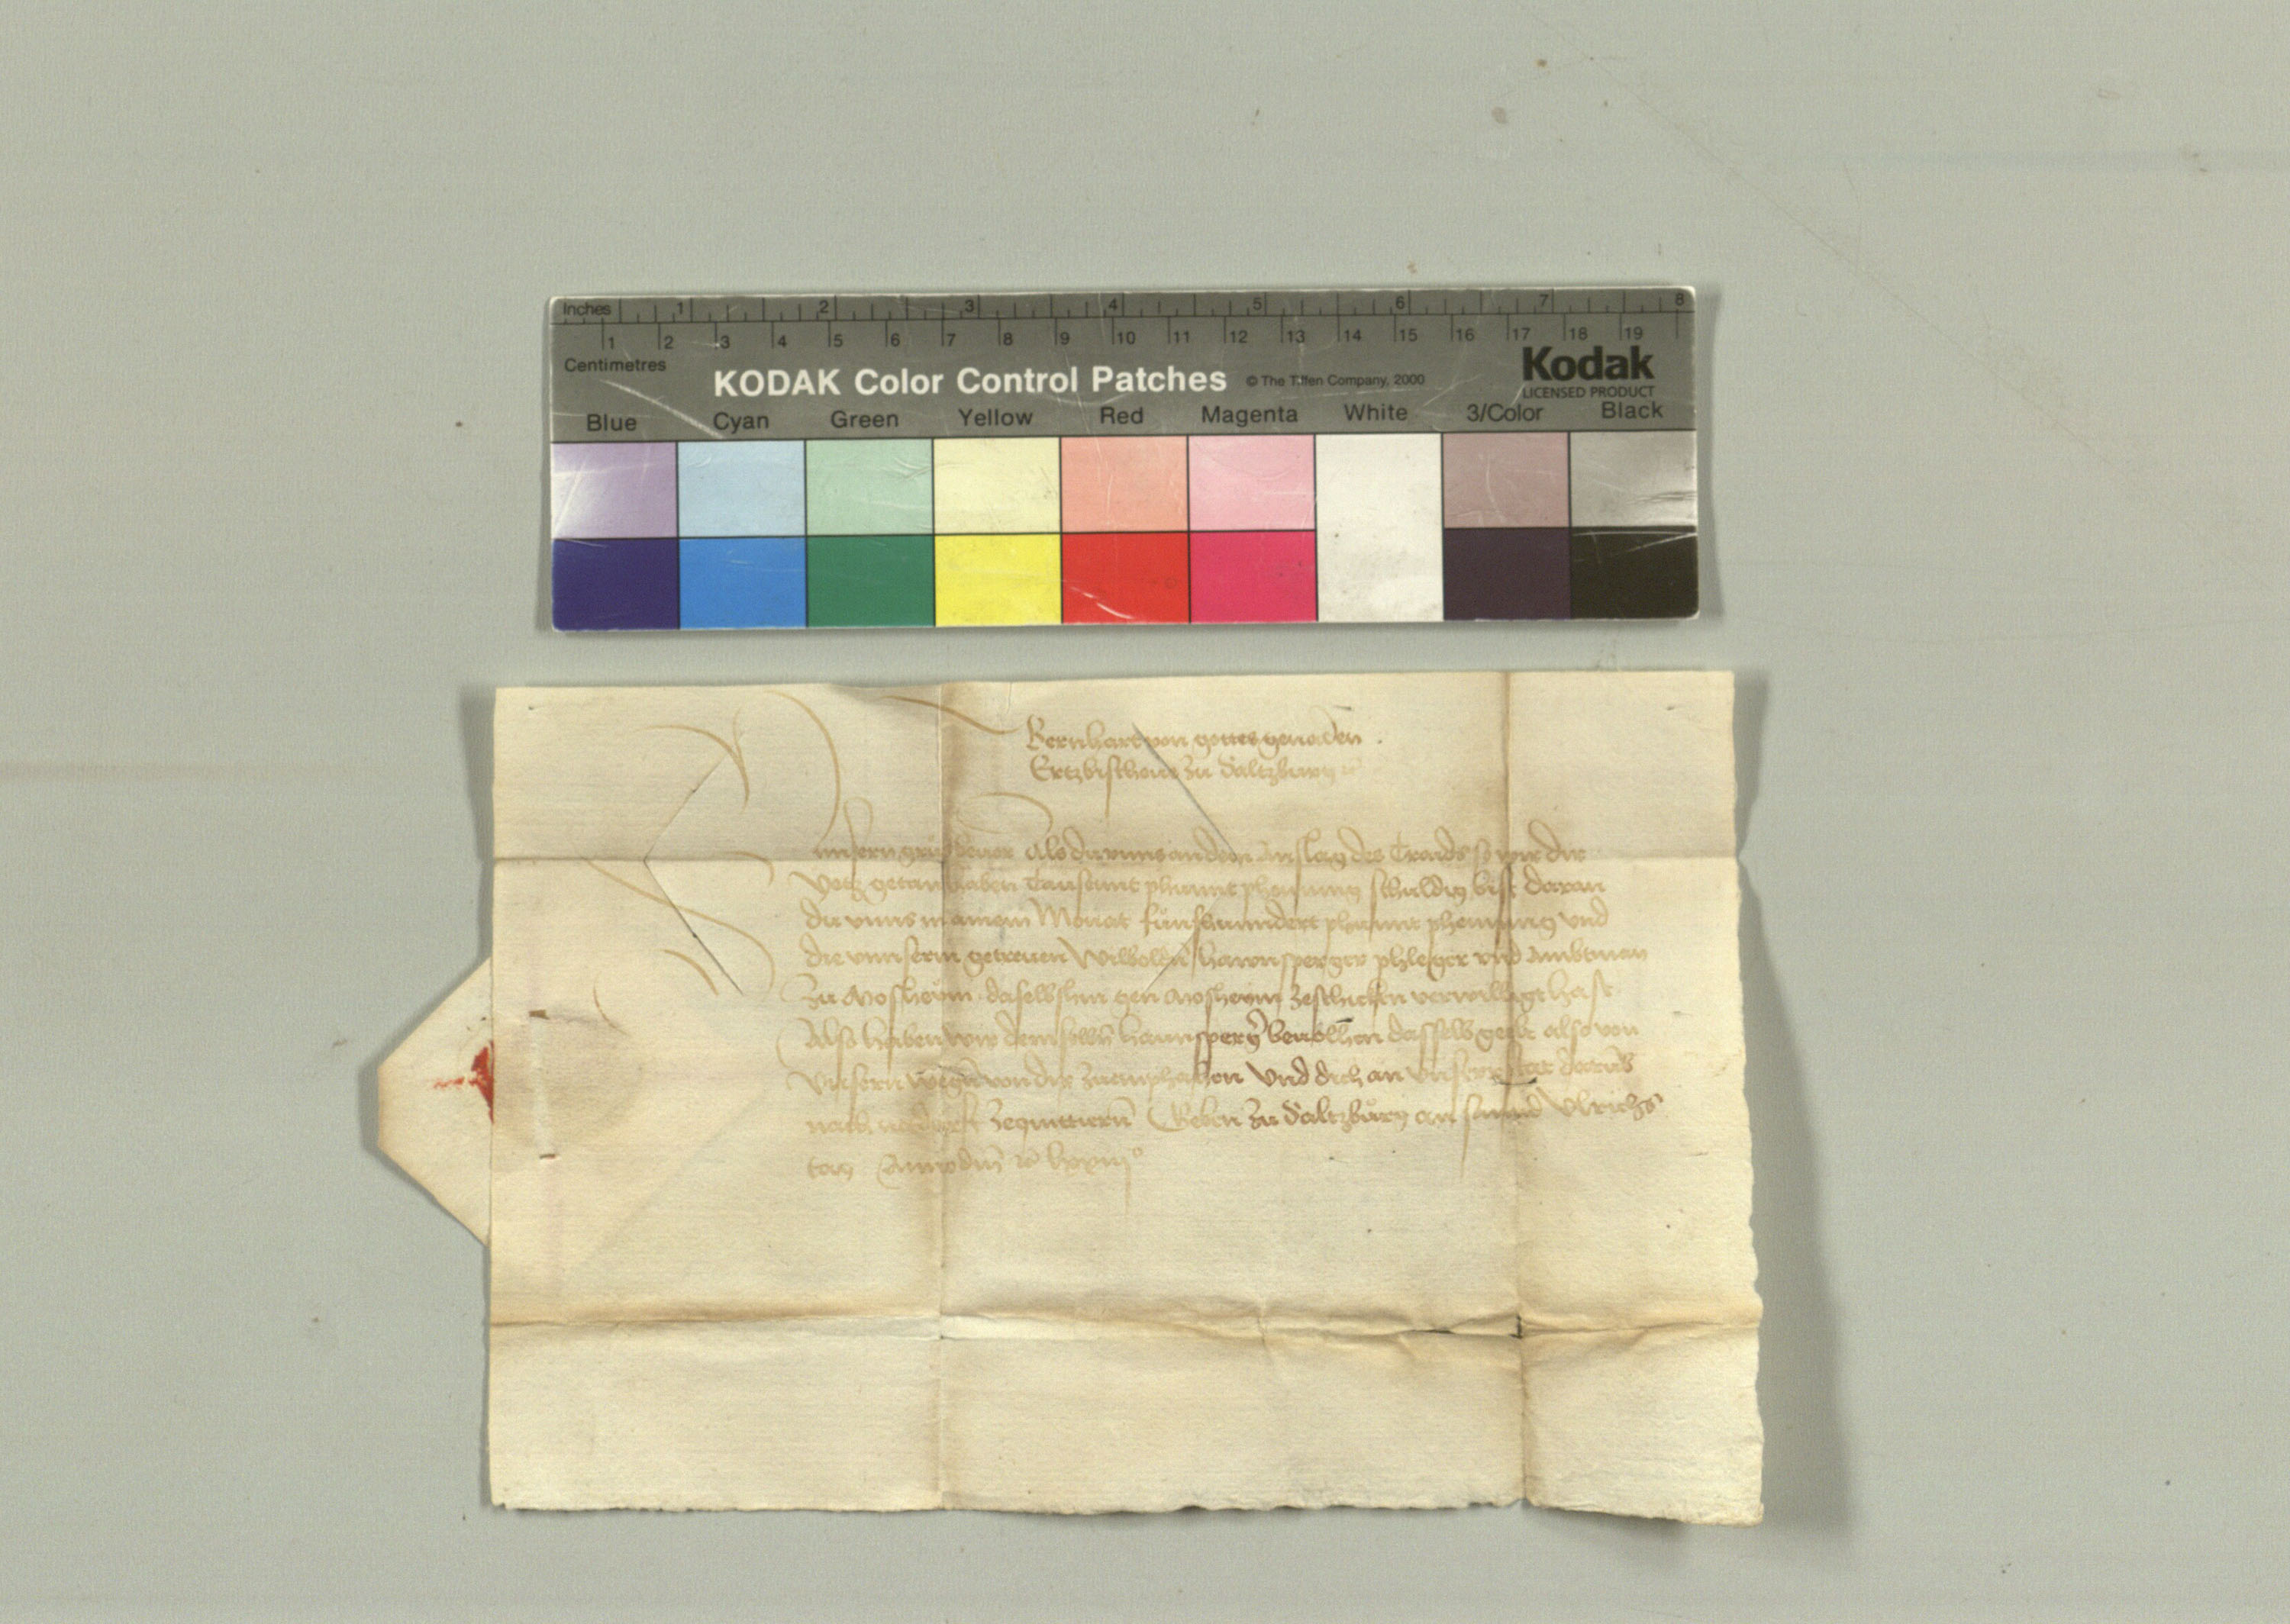 Inches 1 2 3 4 5 6 7 8
1 2 3 4 5 6 7 8 9 10 11 12 13 14 15 16 17 18 19
Centimetres
KODAK Color Control Patches © The Tiffen Company, 2000 Kodak
LICENSED PRODUCT
Blue Cyan Green Yellow Red Magenta White 3/Color Black
Bernhart von gottes genaden
Ertzbischoue zu Saltzburg
unsern grus lieber Als du vnns an dem Anslag des Traids so wir dir
yetz getan haben Tausennt phunnt phenning schuldig bist daran
du vnns in ainem Monat fünfhunndert phunnt phenning vnd
die vnnserm getreuen Wilbolden hawnsperger phleger vnd Ambtman
zu Mosheym daselbshin gen Mosheym zeschicken verwilligt hast
Also haben wir demselbn haunsperg̃ beuolhen dasselb gelt also von
vnsern wegen von dir zuemphahen Vnd dich an vnnser stat darumb
nach notdurft zequittiern̄ Geben zu Saltzburg an sannd Vlrichs
tag Anno dm̄